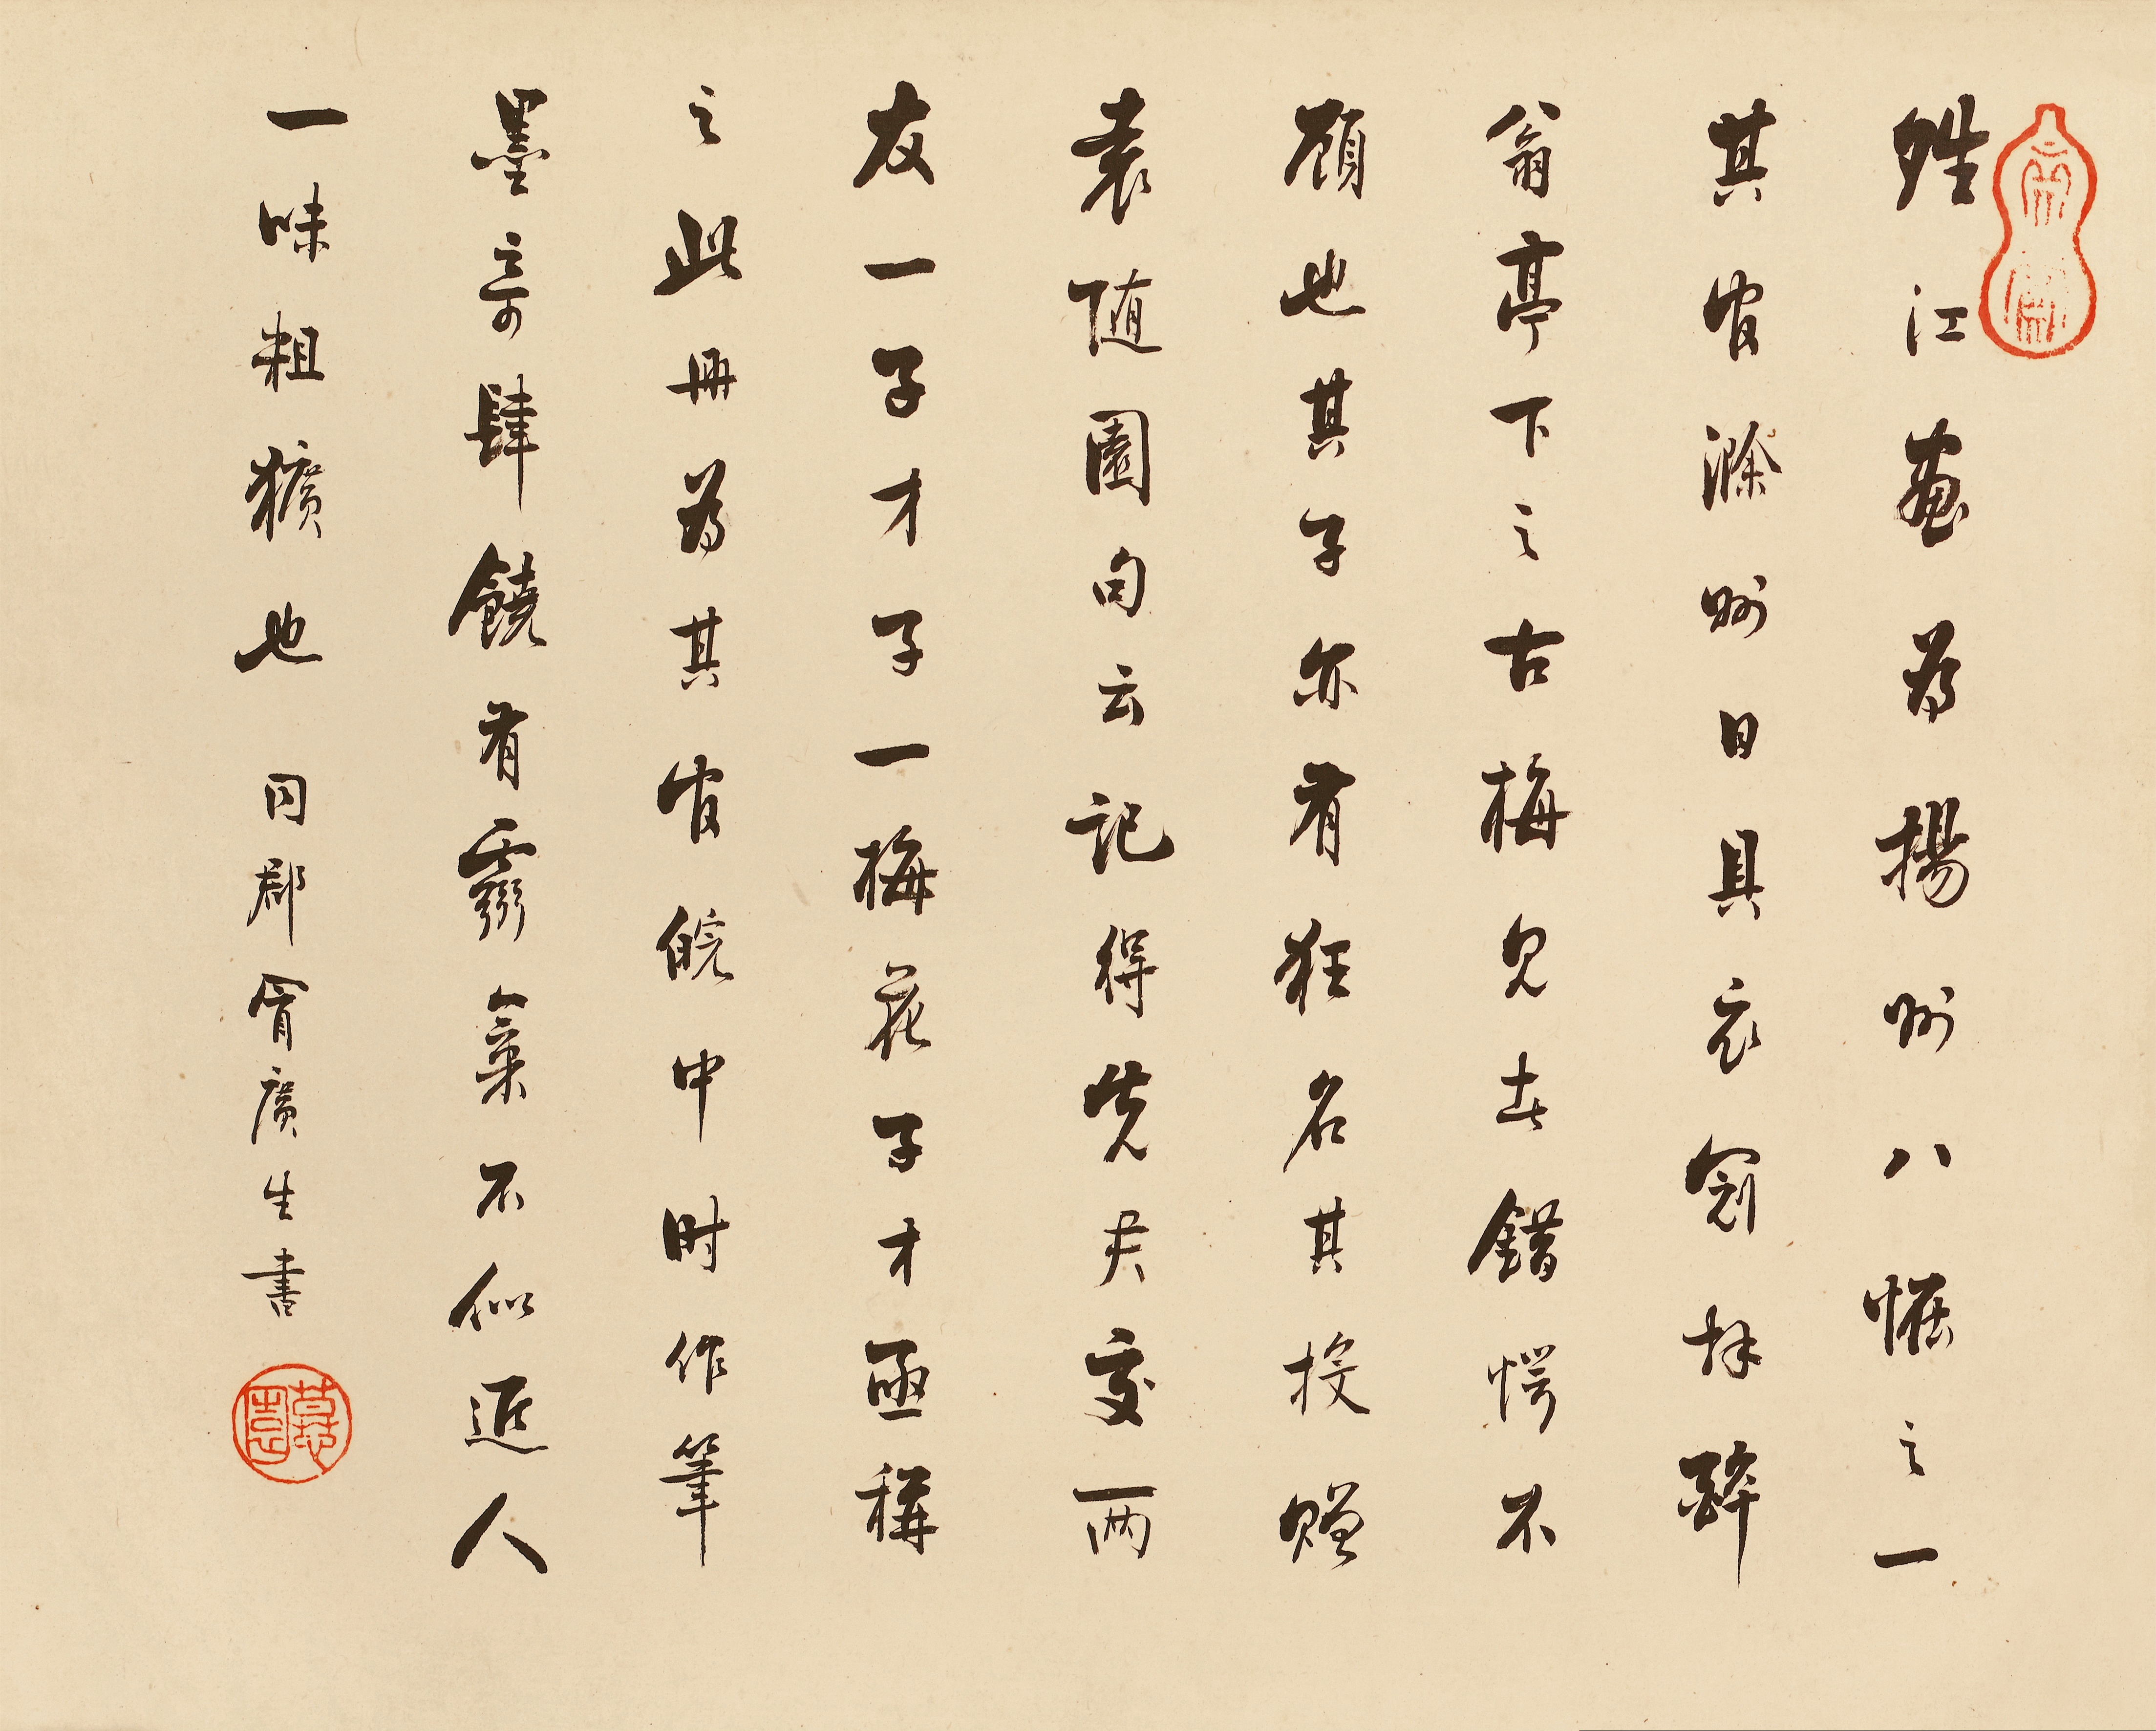 夝江畫為揚州八恠之一
其官滁州日具衣冠拜醉
翁亭下之古梅見者錯愕不
顧也其子亦有狂名其投贈
袁随園句云記得先君交两
友一子才子一梅花子才亟稱
之此冊為其官皖中时作筆
墨奇肆饒有霸氣不似近人
一味粗獷也 同郡冒廣生書